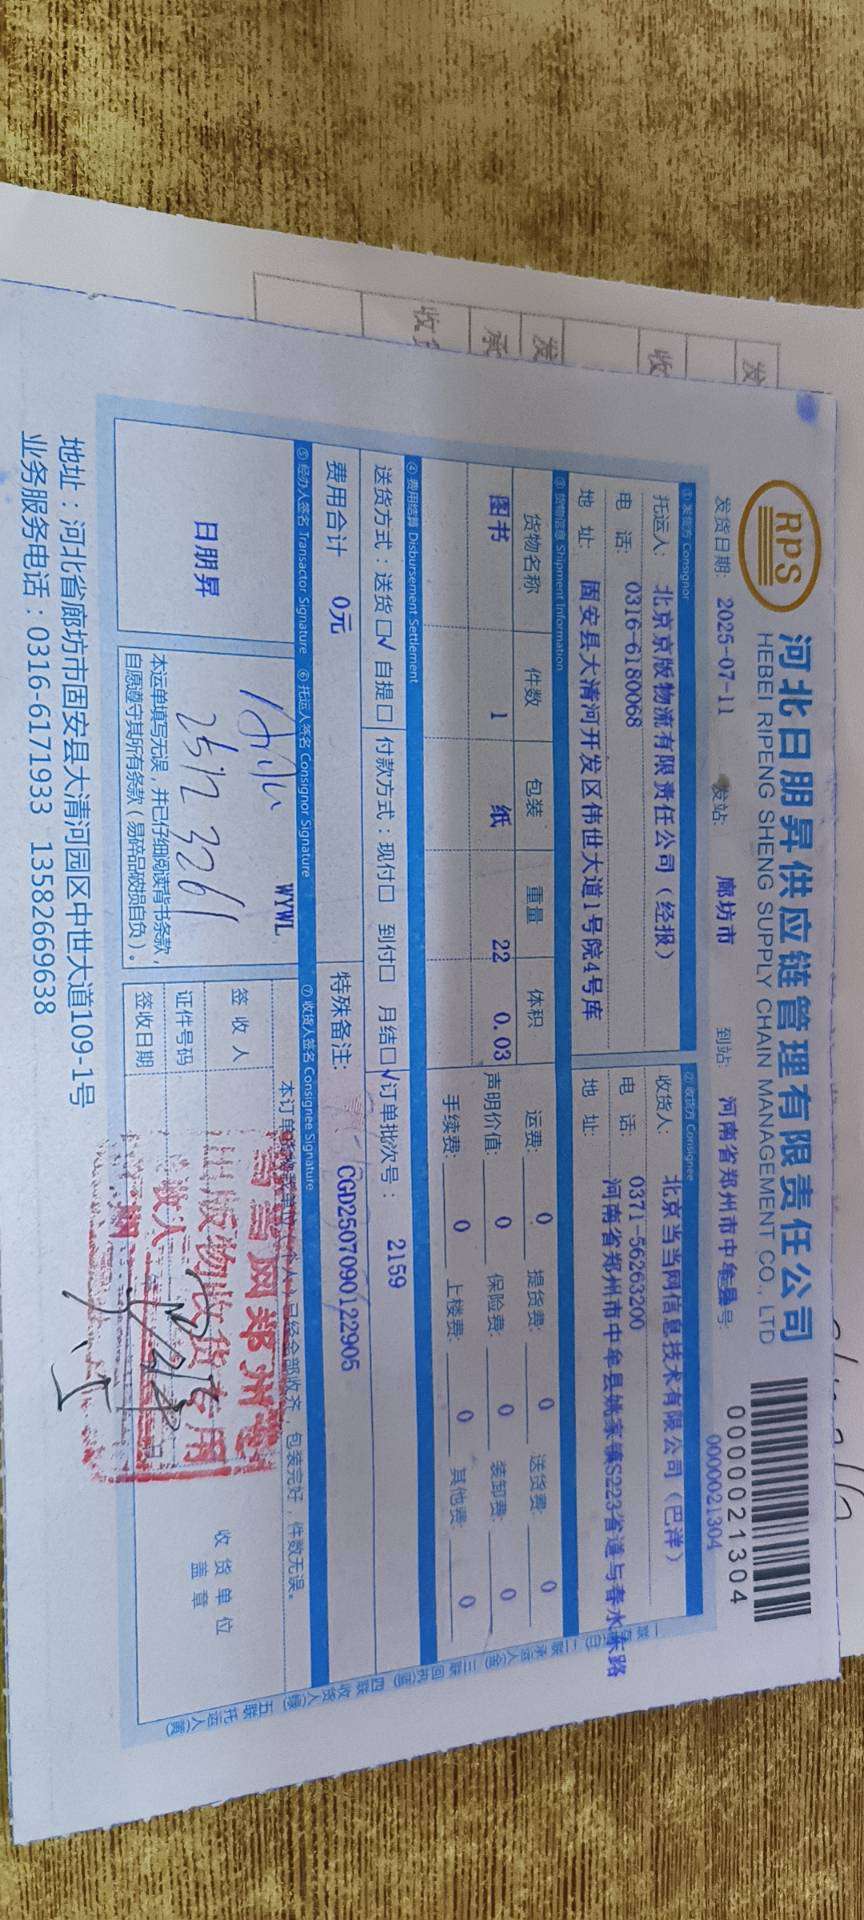 RPS
河北日朋昇供应链管理有限责任公司
HEBEI RIPENG SHENG SUPPLY CHAIN MANAGEMENT CO., LTD
0000021304
0000021304
发货日期: 2025-07-11 发站: 廊坊市 到站: 河南省郑州市中牟县 号:
① 发货方 Consignor
托运人: 北京京版物流有限责任公司（经报）
电 话: 0316-6180068
地 址: 固安县大清河开发区伟世大道1号院4号库
② 收货方 Consignee
收货人: 北京当当网信息技术有限公司（巴洋）
电 话: 0371-56263200
地 址: 河南省郑州市中牟县姚家镇S223省道与春水东路
③ 货物信息 Shipment Information
货物名称 件数 包装 重量 体积
图书 1 纸 22 0.03
运费: 0 提货费: 0 送货费: 0
声明价值: 0 保险费: 0 装卸费: 0
手续费: 0 上楼费: 0 其他费: 0
④ 费用结算 Disbursement Settlement
送货方式：送货☐√ 自提☐ 付款方式：现付☐ 到付☐ 月结☐√ 订单批次号： 2159
费用合计 0元 特殊备注: CGD2507090122905
⑤ 经办人签名 Transactor Signature ⑥ 托运人签名 Consignor Signature ⑦ 收货人签名 Consignee Signature
日朋昇
WYWL
本运单填写无误，并已仔细阅读背书条款，
自愿遵守其所有条款（易碎品破损自负）。
已经全部收齐，包装完好，件数无误。
签 收 人
证件号码
签收日期
收 货 单 位
盖 章
出版物收货专用
地址：河北省廊坊市固安县大清河园区中世大道109-1号
业务服务电话：0316-6171933 13582669638
发
收
发
承
收